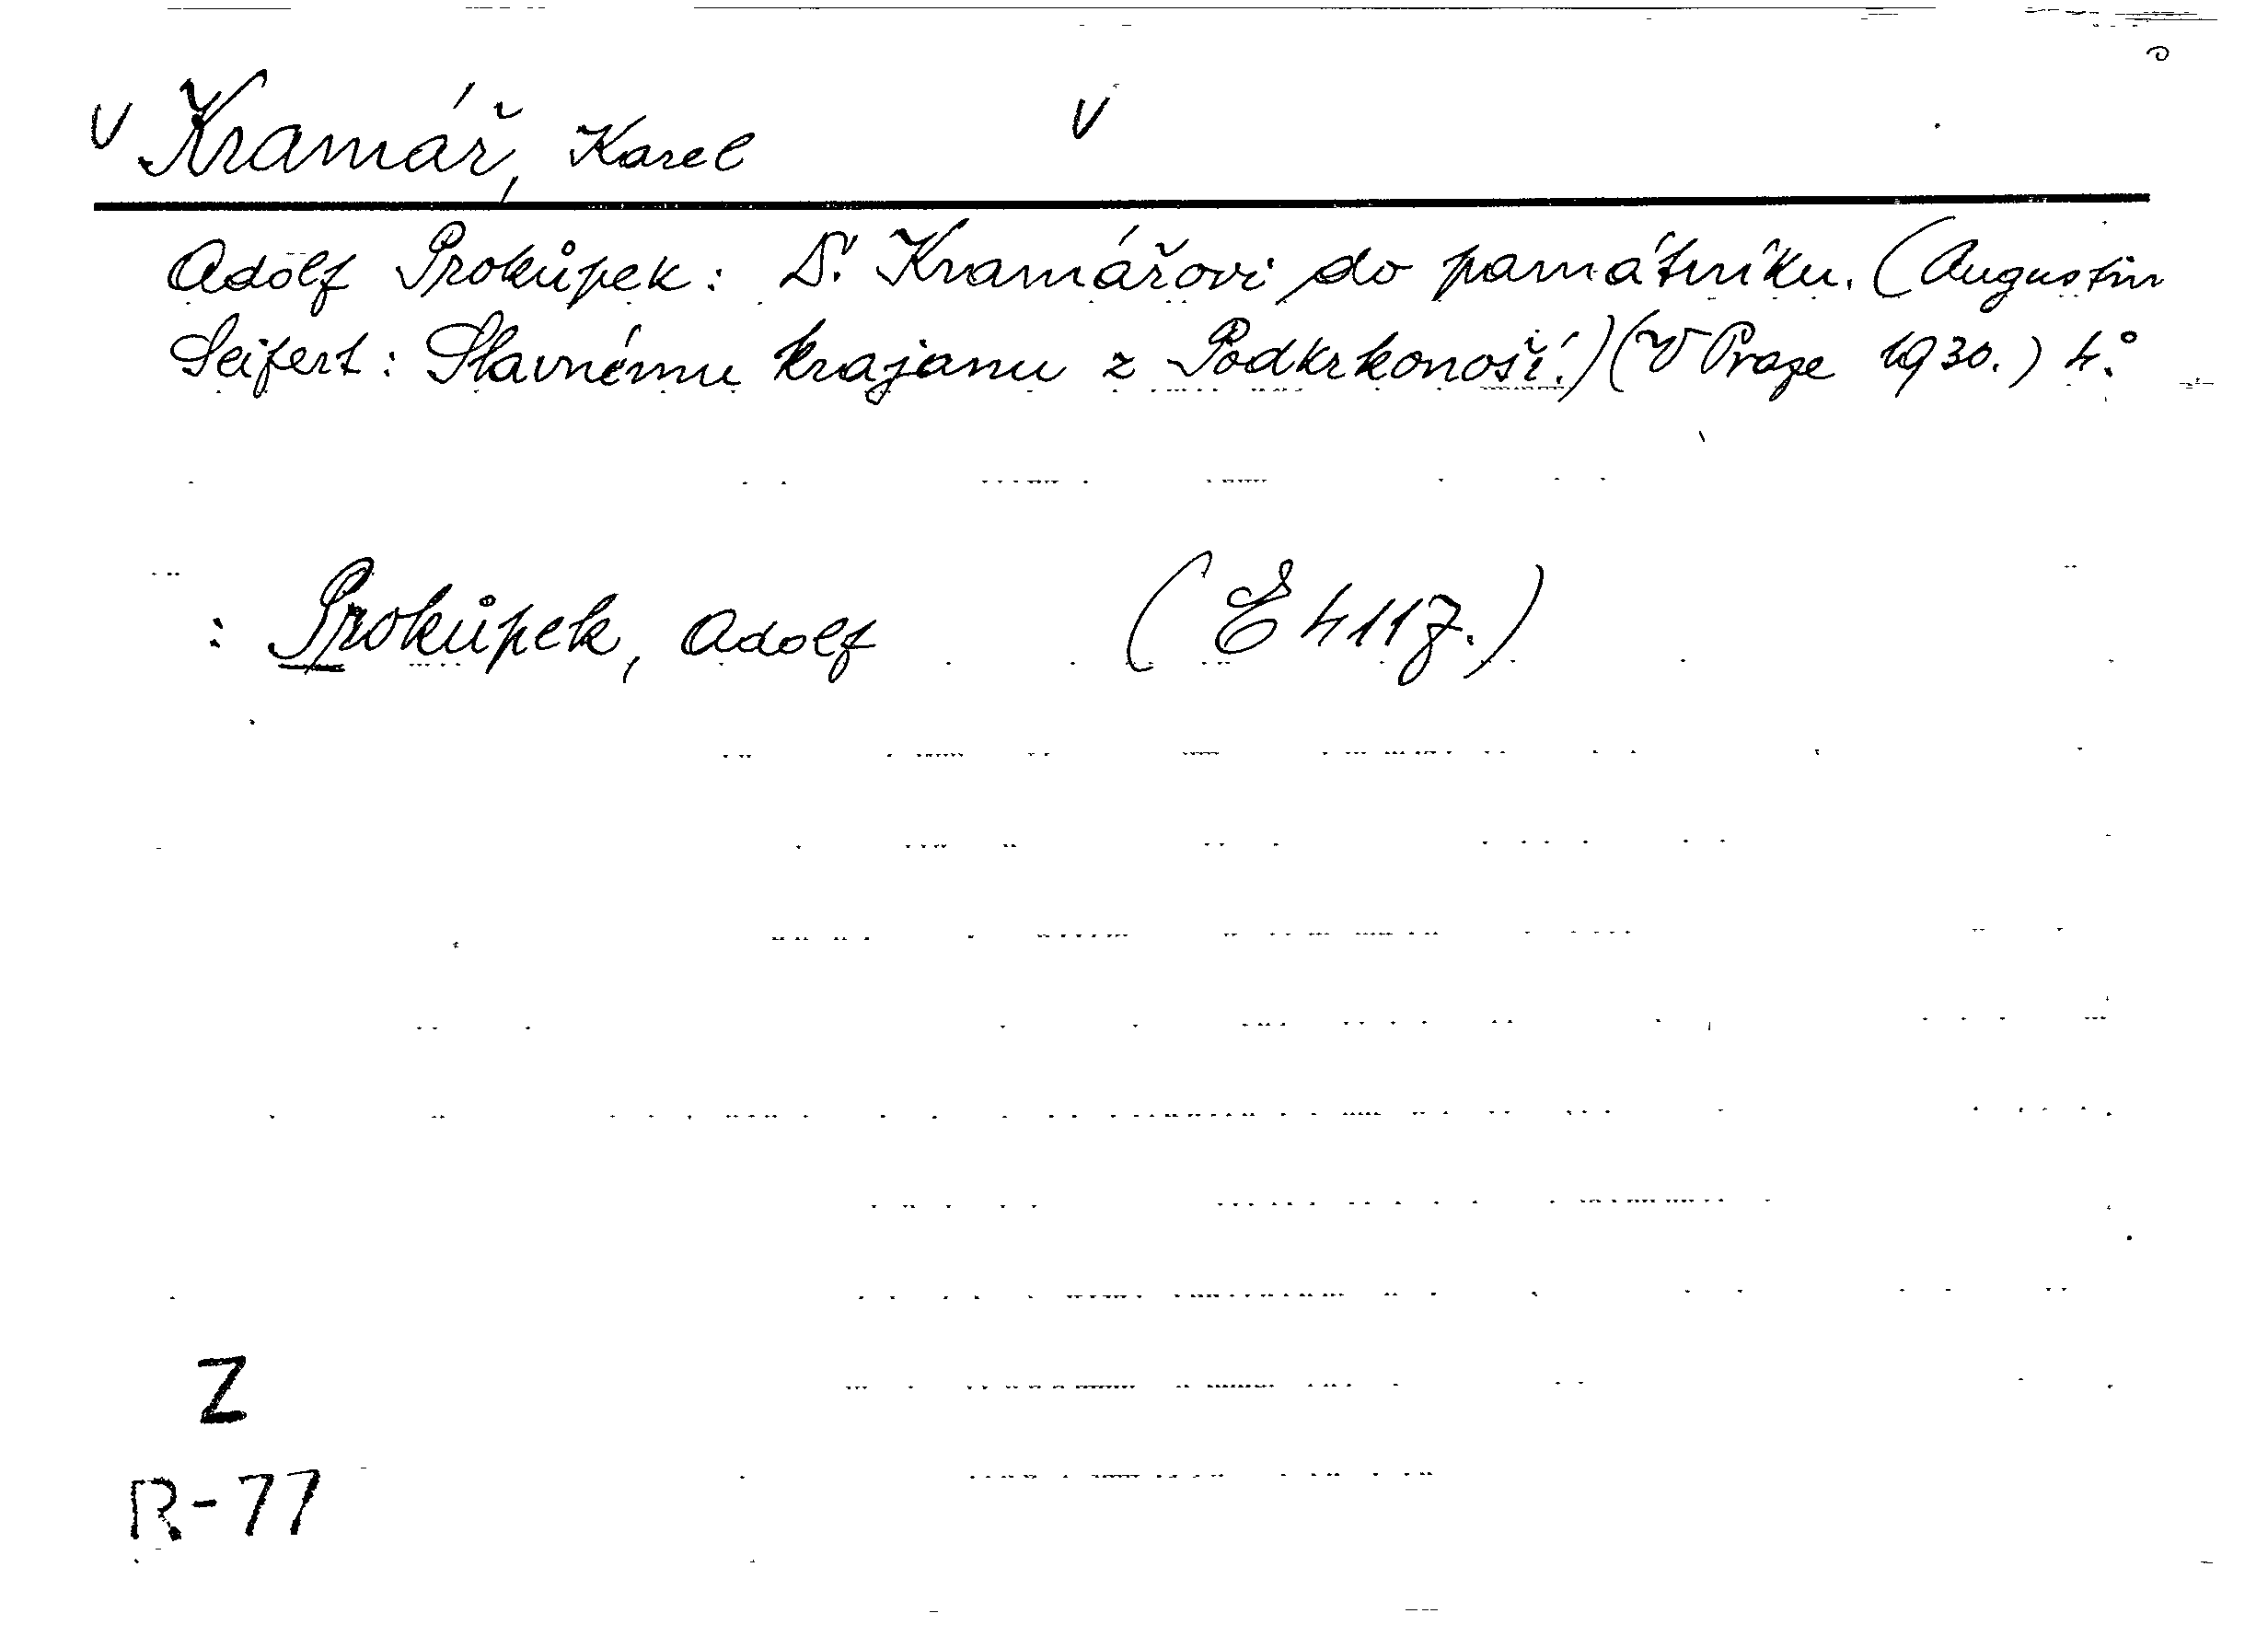 v Kramář, Karel v
Adolf Prokůpek: Dr. Kramářovi do památníku. (Augustin
Seifert: Slavnému krajanu z Podkrkonoší.) (V Praze 1930.) 4°.
: Prokůpek, Adolf (E 4117.)
Z
R-77